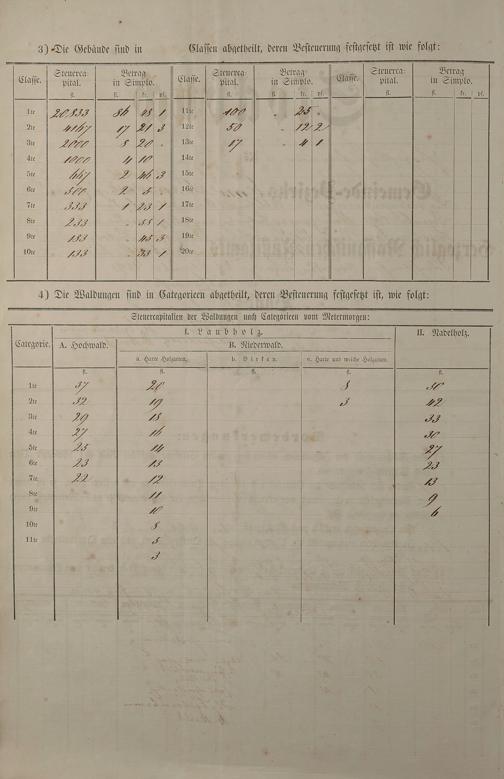 3) Die Gebäude sind in Classen abgetheilt, deren Besteuerung festgesetzt ist wie folgt:
Classe. Steuerca- pital. Betrag in Simplo. Classe. Steuerca- pital. Betrag in Simplo. Classe. Steuerca- pital. Betrag in Simplo.
fl. fl. kr. pf. fl. fl. kr. pf. fl. fl. kr. pf.
1te 20,833 86 48 1 11te 100 . 25 .
2te 4167 17 21 3 12te 50 . 12 2
3te 2000 8 20 . 13te 17 . 4 1
4te 1000 4 10 14te
5te 667 2 46 3 15te
6te 500 2 5 . 16te
7te 333 1 23 1 17te
8te 233 . 58 1 18te
9te 183 . 45 3 19te
10te 133 . 33 1 20te
4) Die Waldungen sind in Categorieen abgetheilt, deren Besteuerung festgesetzt ist, wie folgt:
Steuercapitalien der Waldungen nach Categorieen vom Metermorgen:
Categorie. I. Laubholz. II. Nadelholz.
A. Hochwald. B. Niederwald.
a. Harte Holzarten. b. Birken. c. Harte und weiche Holzarten.
fl. fl. fl. fl. fl.
1te 37 20 8 50
2te 32 19 3 42
3te 29 18 33
4te 27 16 30
5te 25 14 27
6te 23 13 23
7te 22 12 13
8te 11 9
9te 10 6
10te 8
11te 5
3